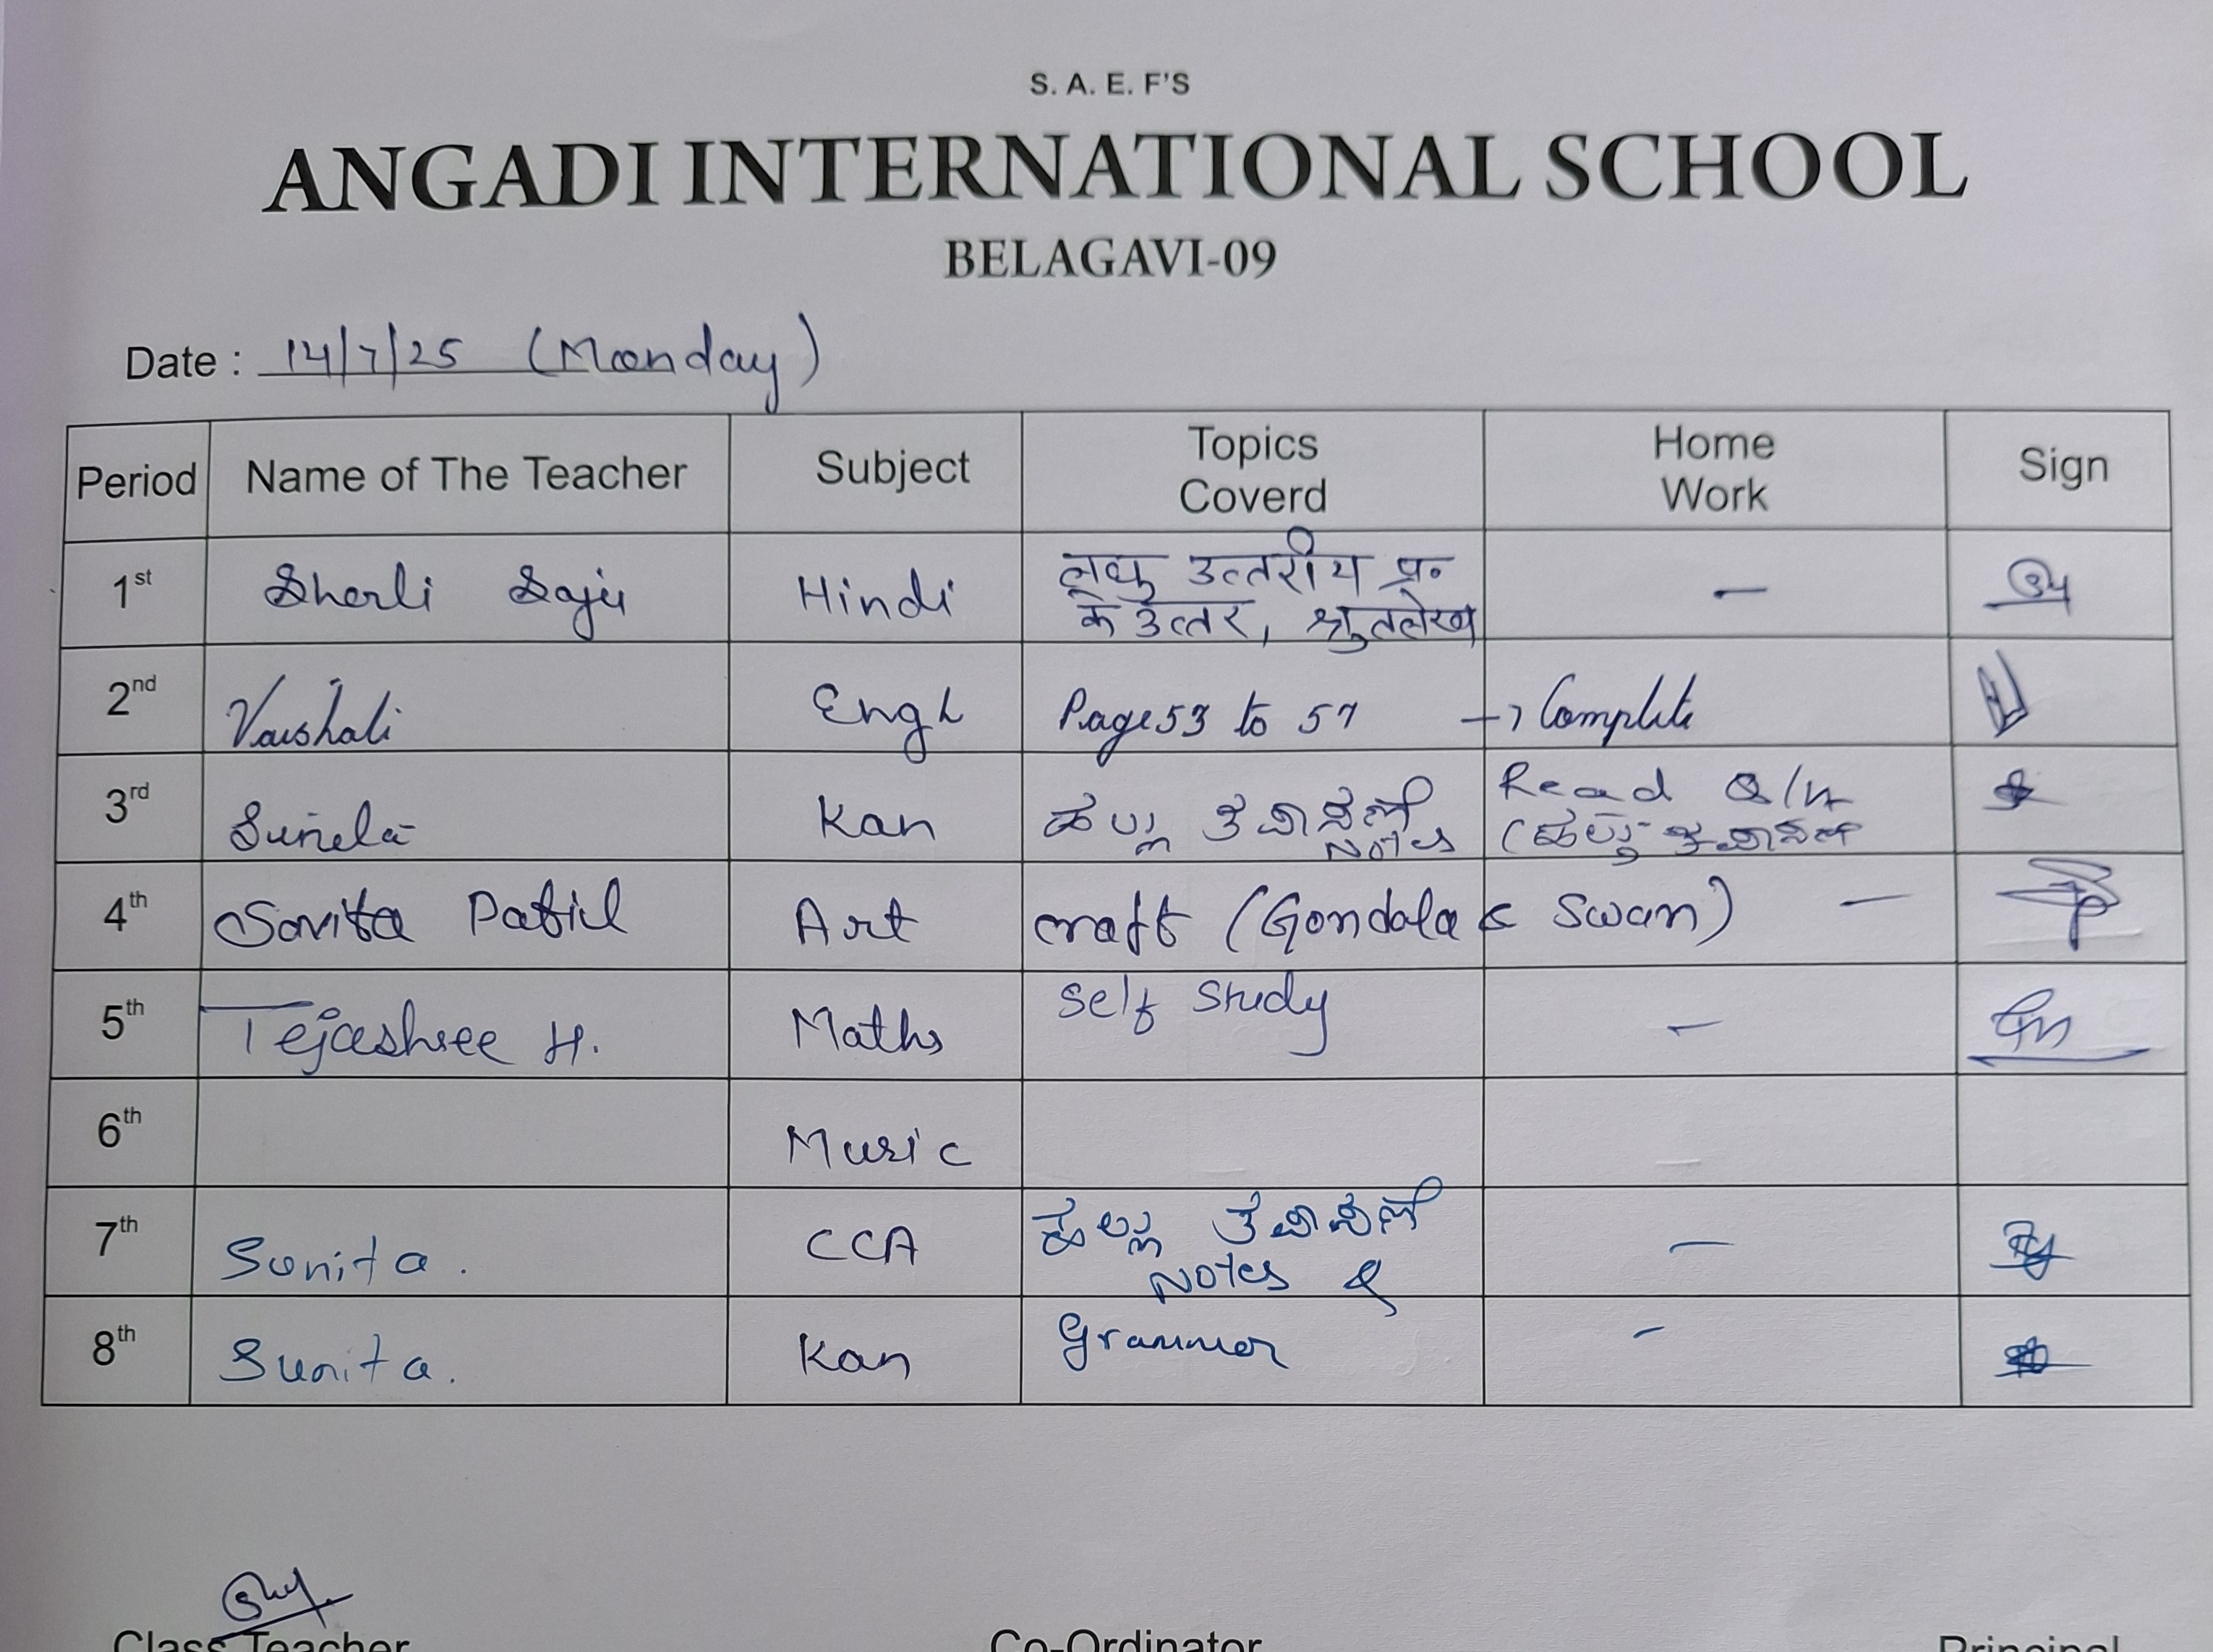 S. A. E. F'S
ANGADI INTERNATIONAL SCHOOL
BELAGAVI-09
Date : 14/7/25 (Monday)
Period Name of The Teacher Subject Topics Coverd Home Work Sign
1st Sherli Saju Hindi लघु उत्तरीय प्र॰ —
के उत्तर, श्रुतलेख
2nd Vaishali Engl Page 53 to 57 → Complete
3rd Sunita Kan ಹಲ್ಲು Notes Read Q/A
4th Savita Patil Art craft (Gondala & Swan) —
5th Tejashree H. Maths Self Study —
6th Music
7th Sunita. CCA ಹಲ್ಲು Notes & —
8th Sunita. Kan Grammer -
Class Teacher Co-Ordinator Principal